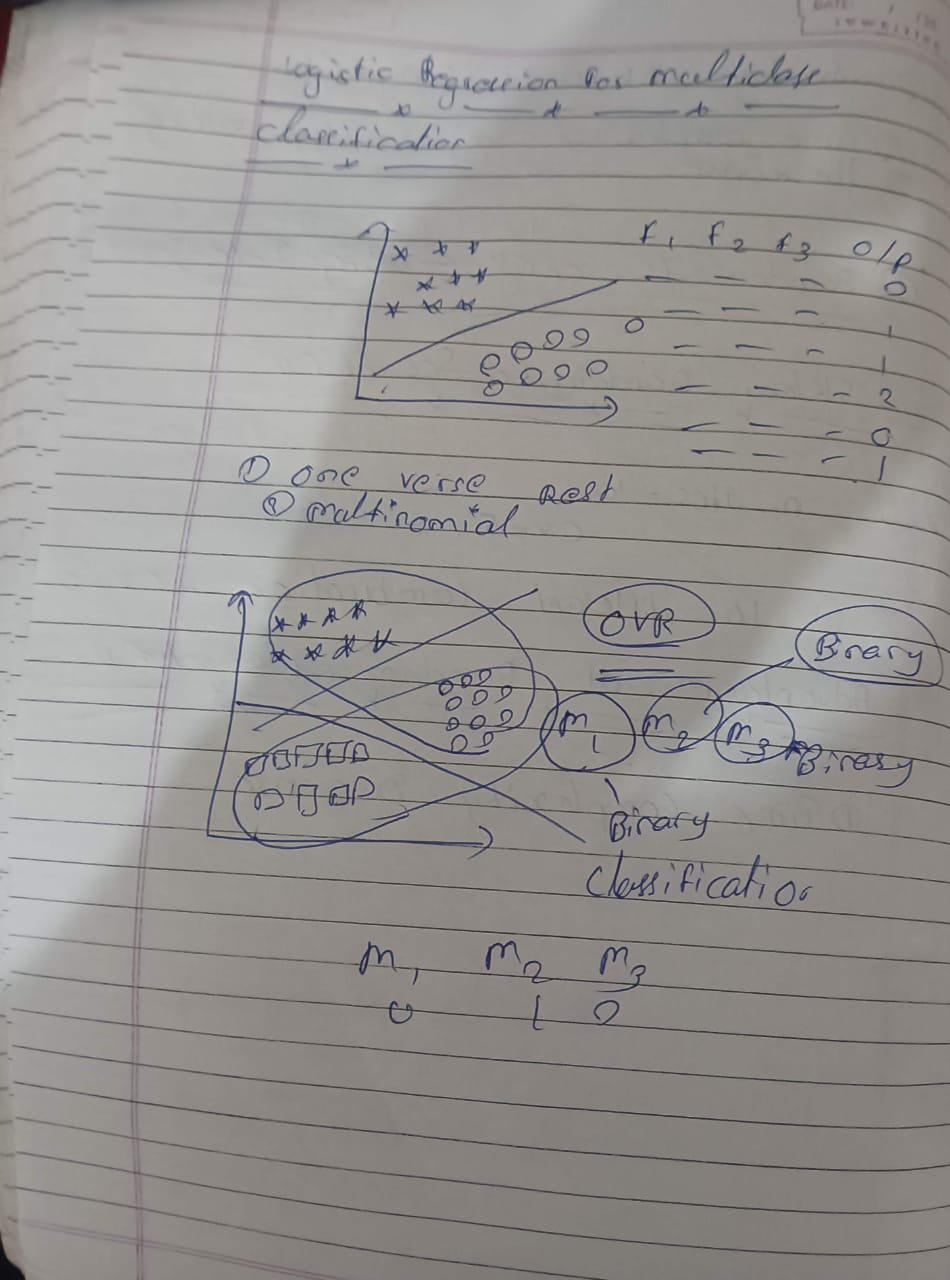 Logistic Regression for multiclass
classification
f1 f2 f3 O/P
- - - 0
- - - 1
- - - 1
- - - 2
- - - 0
- - - 1
① one verse Rest
② multinomial
OVR
Binary
m1 m2 m3 Binary
Binary
classification
m1 m2 m3
0 1 0